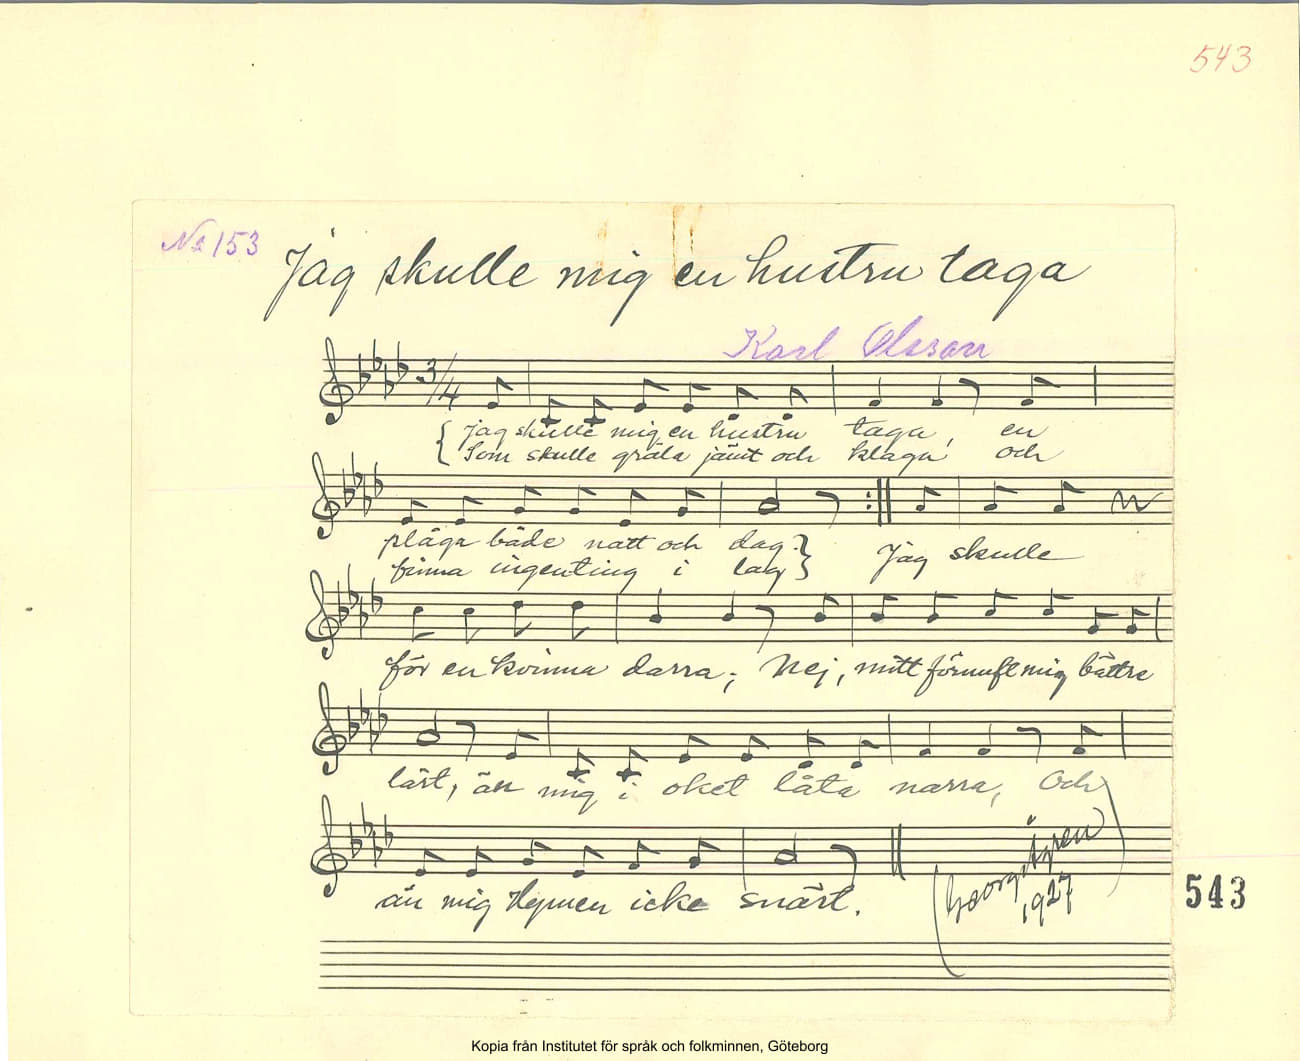 543
No 153
Jag skulle mig en hustru taga
Karl Olsson
3/4
Jag skulle mig en hustru taga, en
Som skulle gräla jämt och klaga och
plåga både natt och dag.
finna ingenting i lag
Jag skulle
för en kvinna darra; Nej, mitt förnuft mig bättre
lärt, än mig i oket låta narra, Och
än mig Hymen icke snärt.
(Georg
1927
543
Kopia från Institutet för språk och folkminnen, Göteborg